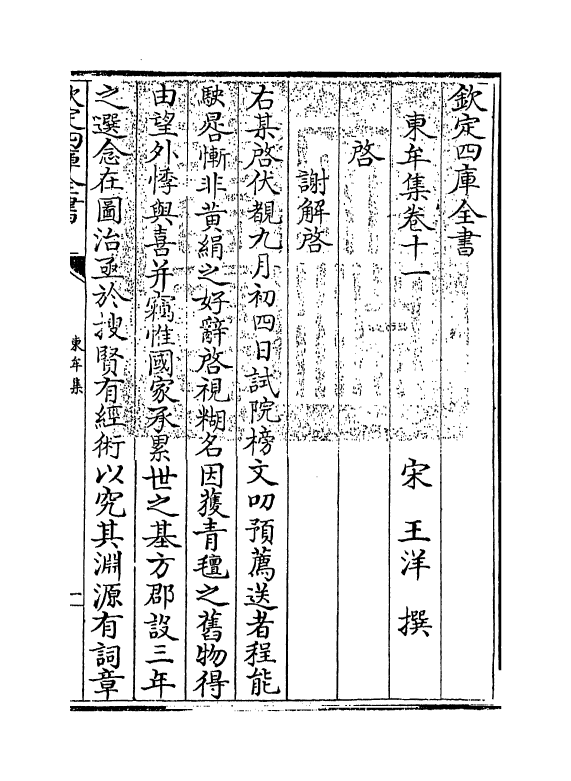 欽定四庫全書
東牟集卷十一
宋 王洋 撰
啓
謝解啓
右某啓伏覩九月初四日試院榜文叨預薦送者程能
駛晷慚非黃絹之好辭啓視糊名因獲青氊之舊物得
由望外悸與喜并竊惟國家承累世之基方郡設三年
之選念在圖治亟於搜賢有經術以究其淵源有詞章
欽定四庫全書
東牟集
一